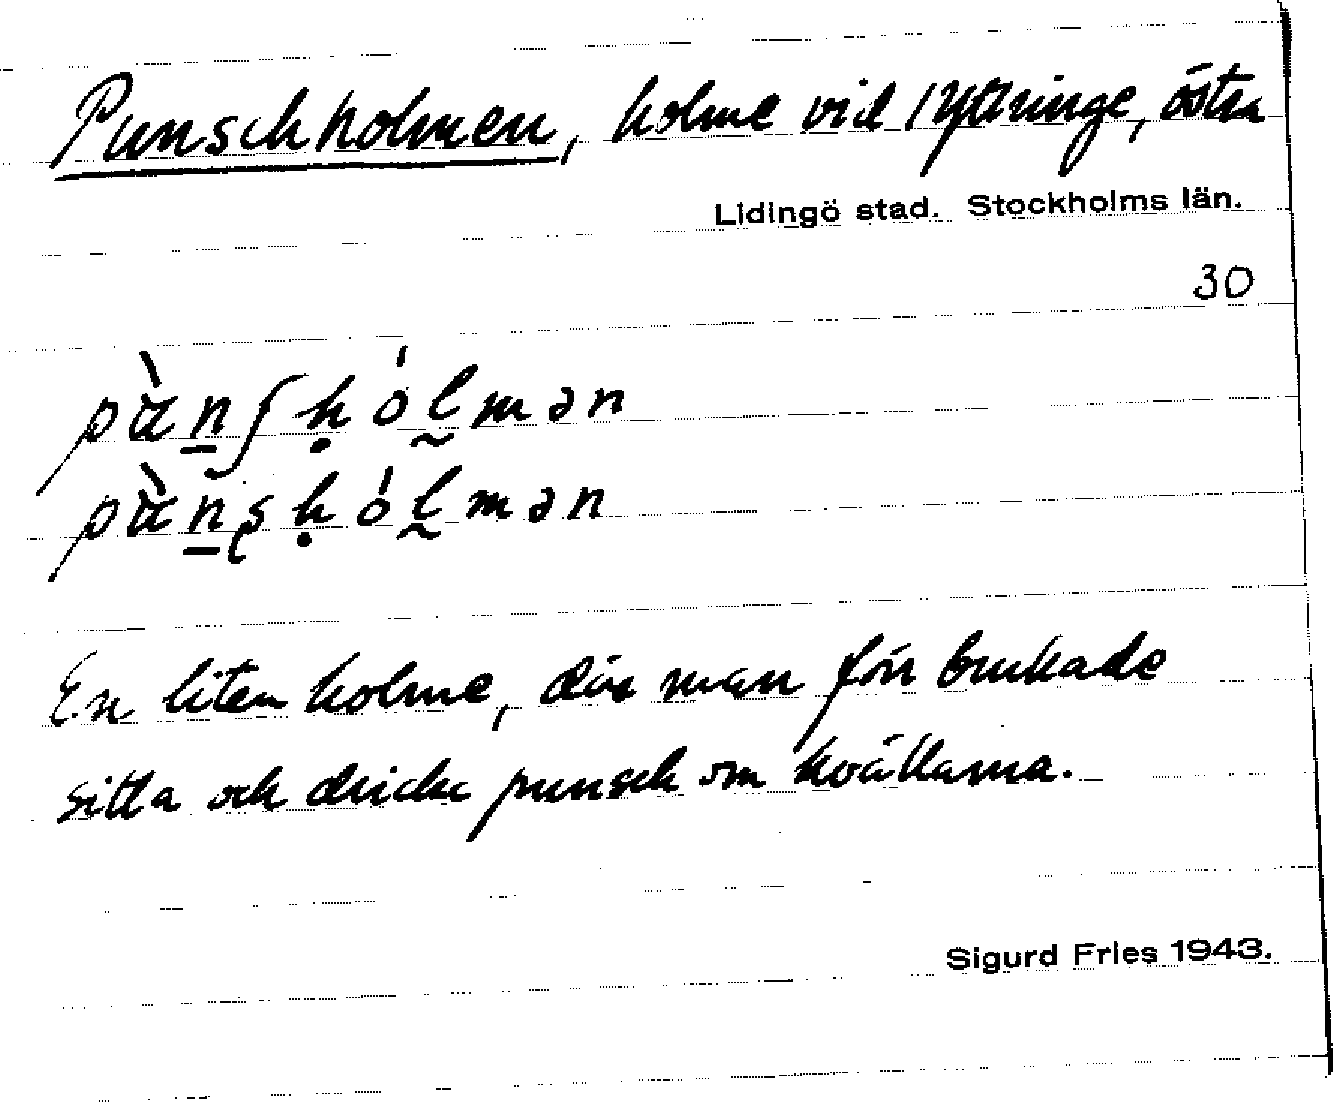 Punschholmen, holme vid Yttringe, östra
Lidingö stad. Stockholms län.
30
pùnʃhólmən
pùnʂhólmən
En liten holme, där man förr brukade
sitta och dricka punsch om kvällarna.
Sigurd Fries 1943.